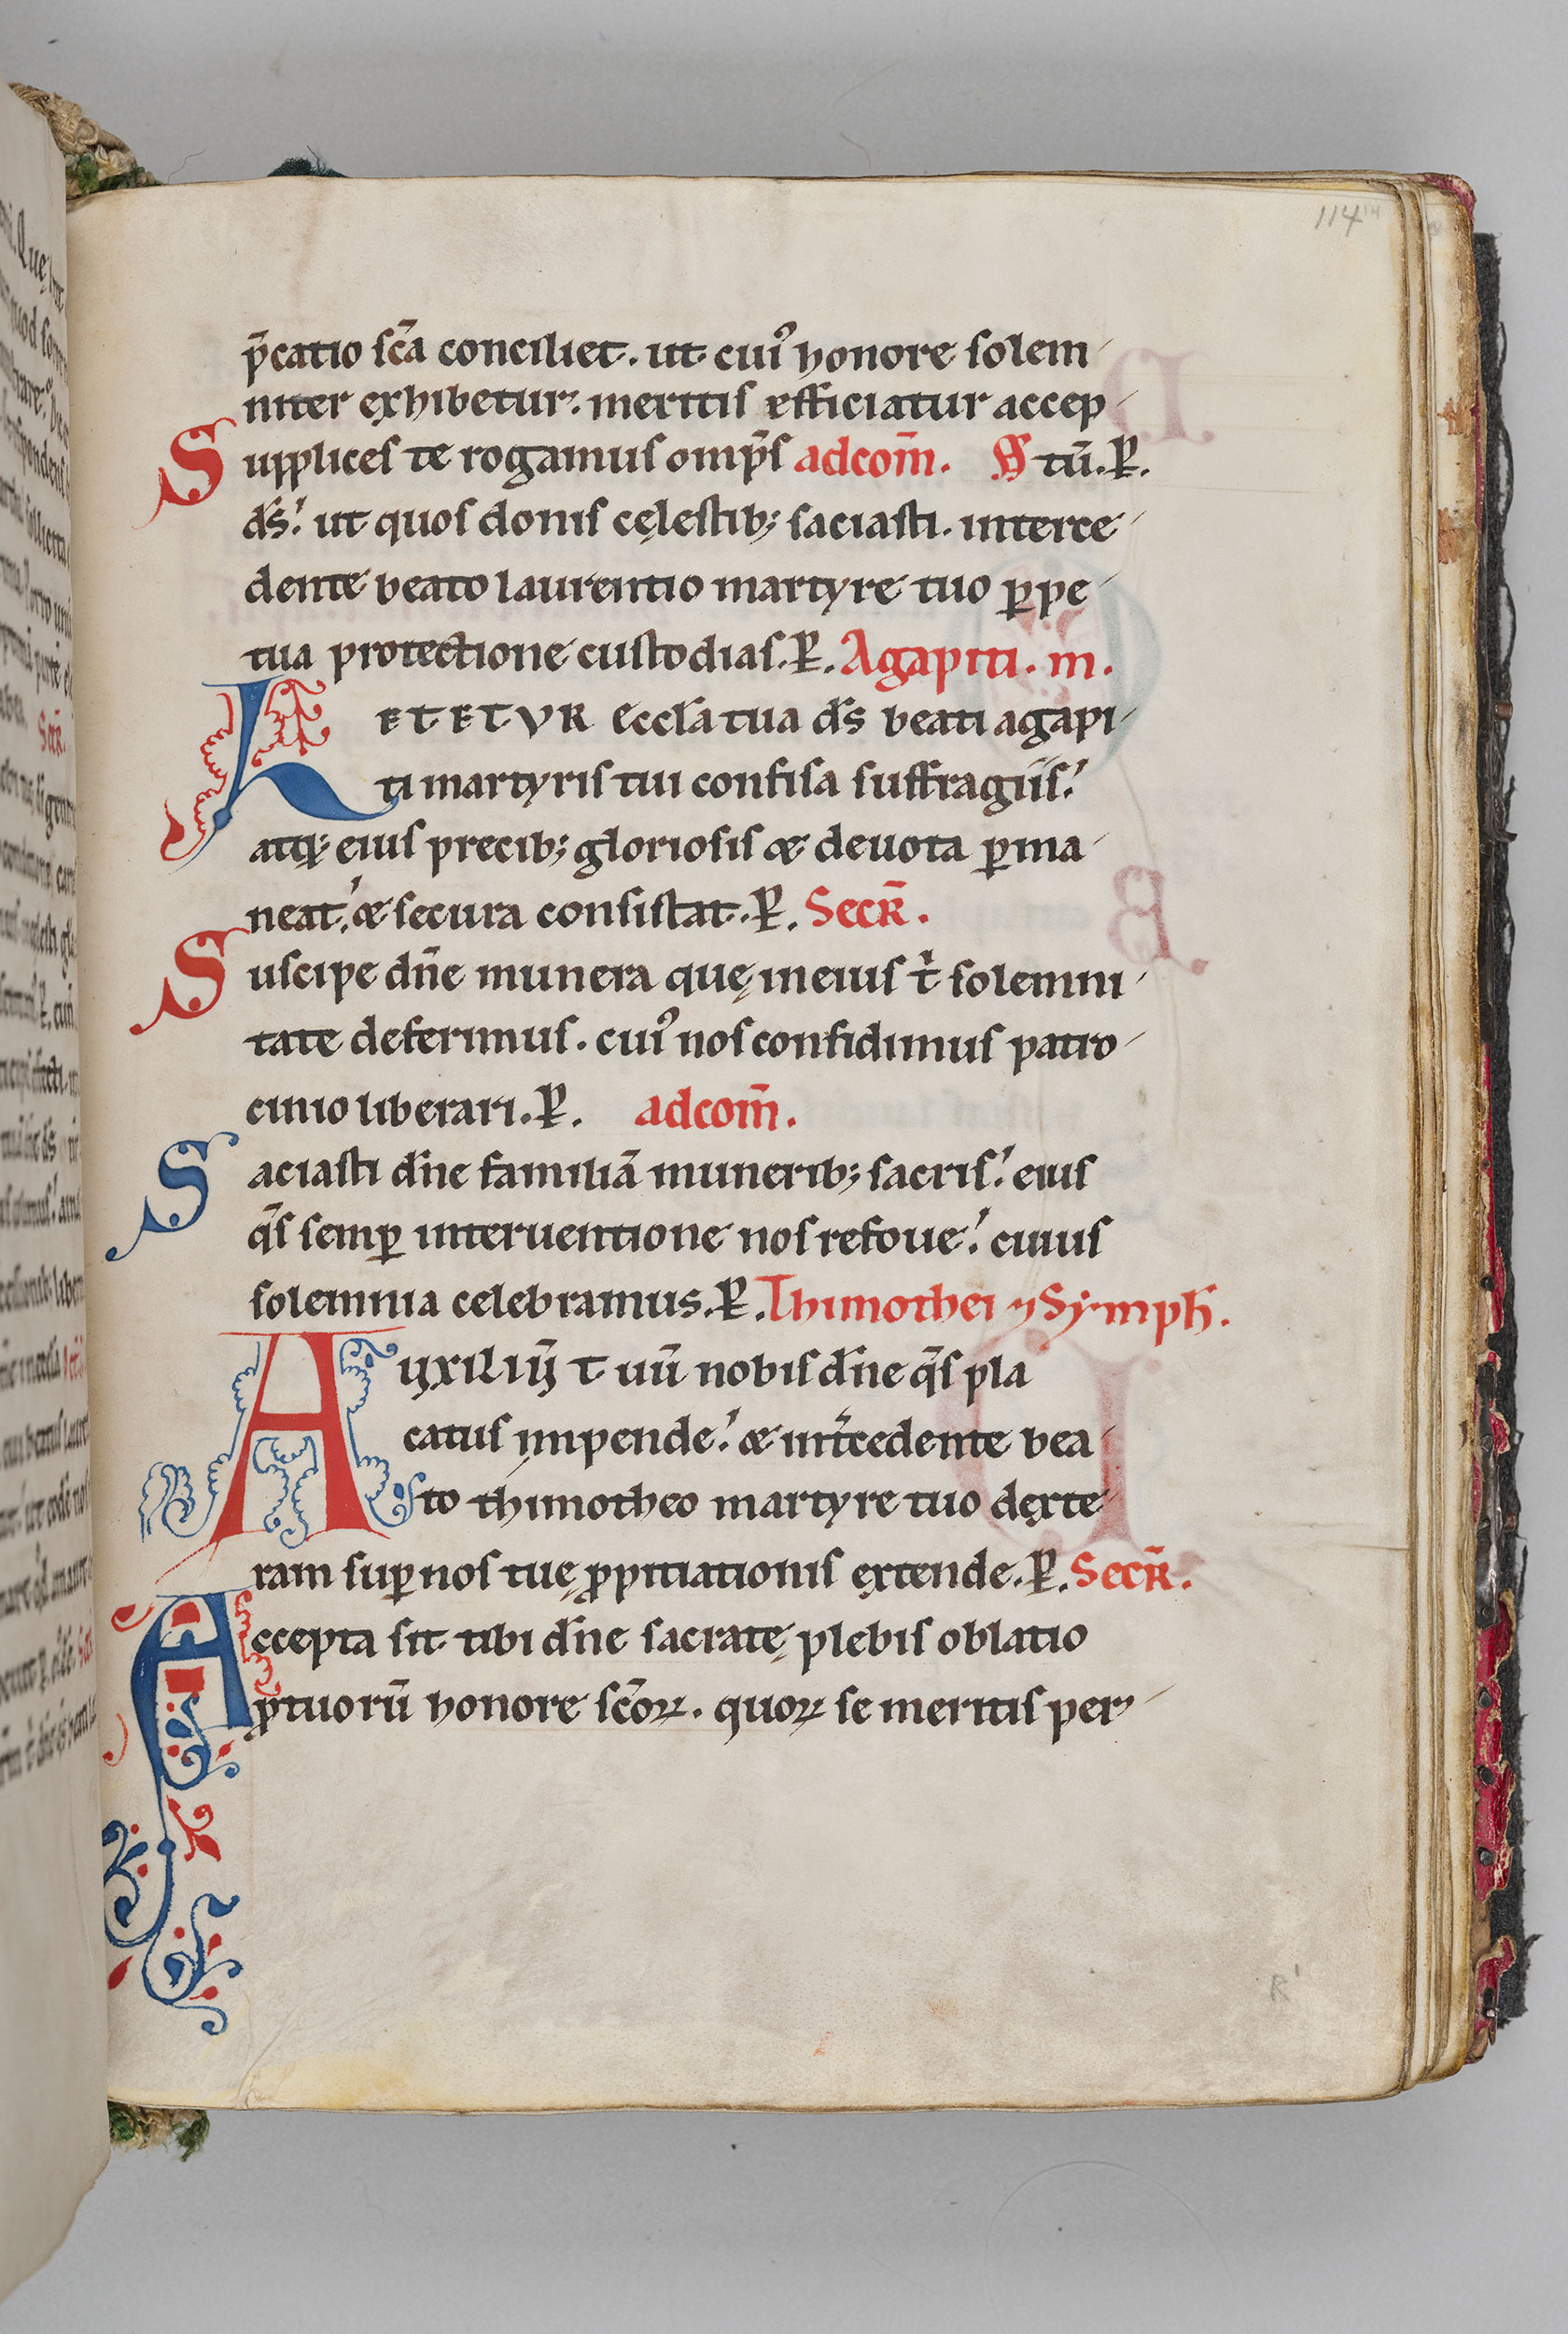 114
p̄catio ſc̄a conciliet. ut cui᾽ honore ſolem
niter exhibetur. meritiſ efficiatur accep
Suppliceſ te rogamuſ omp̄ſ adcom̄. tū. P̱.
d̄s. ut quoſ doniſ cęleſtib; ſaciaſti. interce
dente beato laurentio martyre tuo ꝑpe
tua protectione cuſtodiaſ. P̱. Agapiti. m.
LETETVR eccl̄a tua d̄s beati agapi
ti martyriſ tui confiſa ſuffragiiſ.
atq; eiuſ precib; glorioſis & deuota ꝑma
neat. & ſecura conſiſtat. P̱. Secr̄.
Suſcipe dn̄e munera quę in eiuſ t̄ ſolemni
tate deferimuſ. cui᾽ noſ confidimuſ patro
cinio liberari. P̱. adcom̄.
Saciaſti dn̄e familiā munerib; ſacriſ. eiuſ
q̄ſ ſemꝑ interuentione noſ refoue. cuiuſ
ſolemnia celebramus. P̱. Thimothei ⁊ Symph̄.
Auxiliū tuū nobiſ dn̄e q̄ſ pla
catuſ impende. & int̄cedente bea
to thimotheo martyre tuo dexte
ram ſuꝑ noſ tuę ꝓpitiationiſ extende. P̱. Secr̄.
Accepta ſit tibi dn̄e ſacratę plebiſ oblatio
ꝓ tuorū honore ſc̄oꝝ. quoꝝ ſe meritiſ per